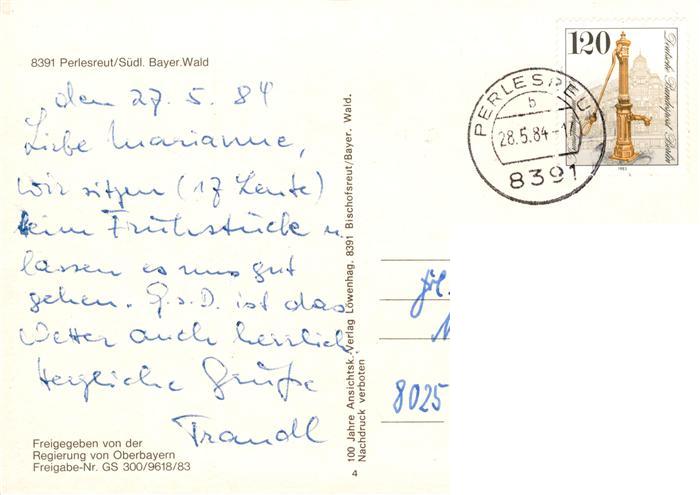 8391 Perlesreut/Südl. Bayer.Wald
den 27. 5. 84
Liebe Marianne,
wir sitzen (17 Leute)
beim Frühstück u.
lassen es uns gut
gehen. G. s. D. ist das
Wetter auch herrlich.
Herzliche Grüße
Traudl
Freigegeben von der
Regierung von Oberbayern
Freigabe-Nr. GS 300/9618/83
100 Jahre Ansichtsk.-Verlag Löwenhag. 8391 Bischofsreut/Bayer. Wald.
Nachdruck verboten
4
PERLESREUT
b
28.5.84-17
8391
120
Deutsche Bundespost Berlin
1983
8025